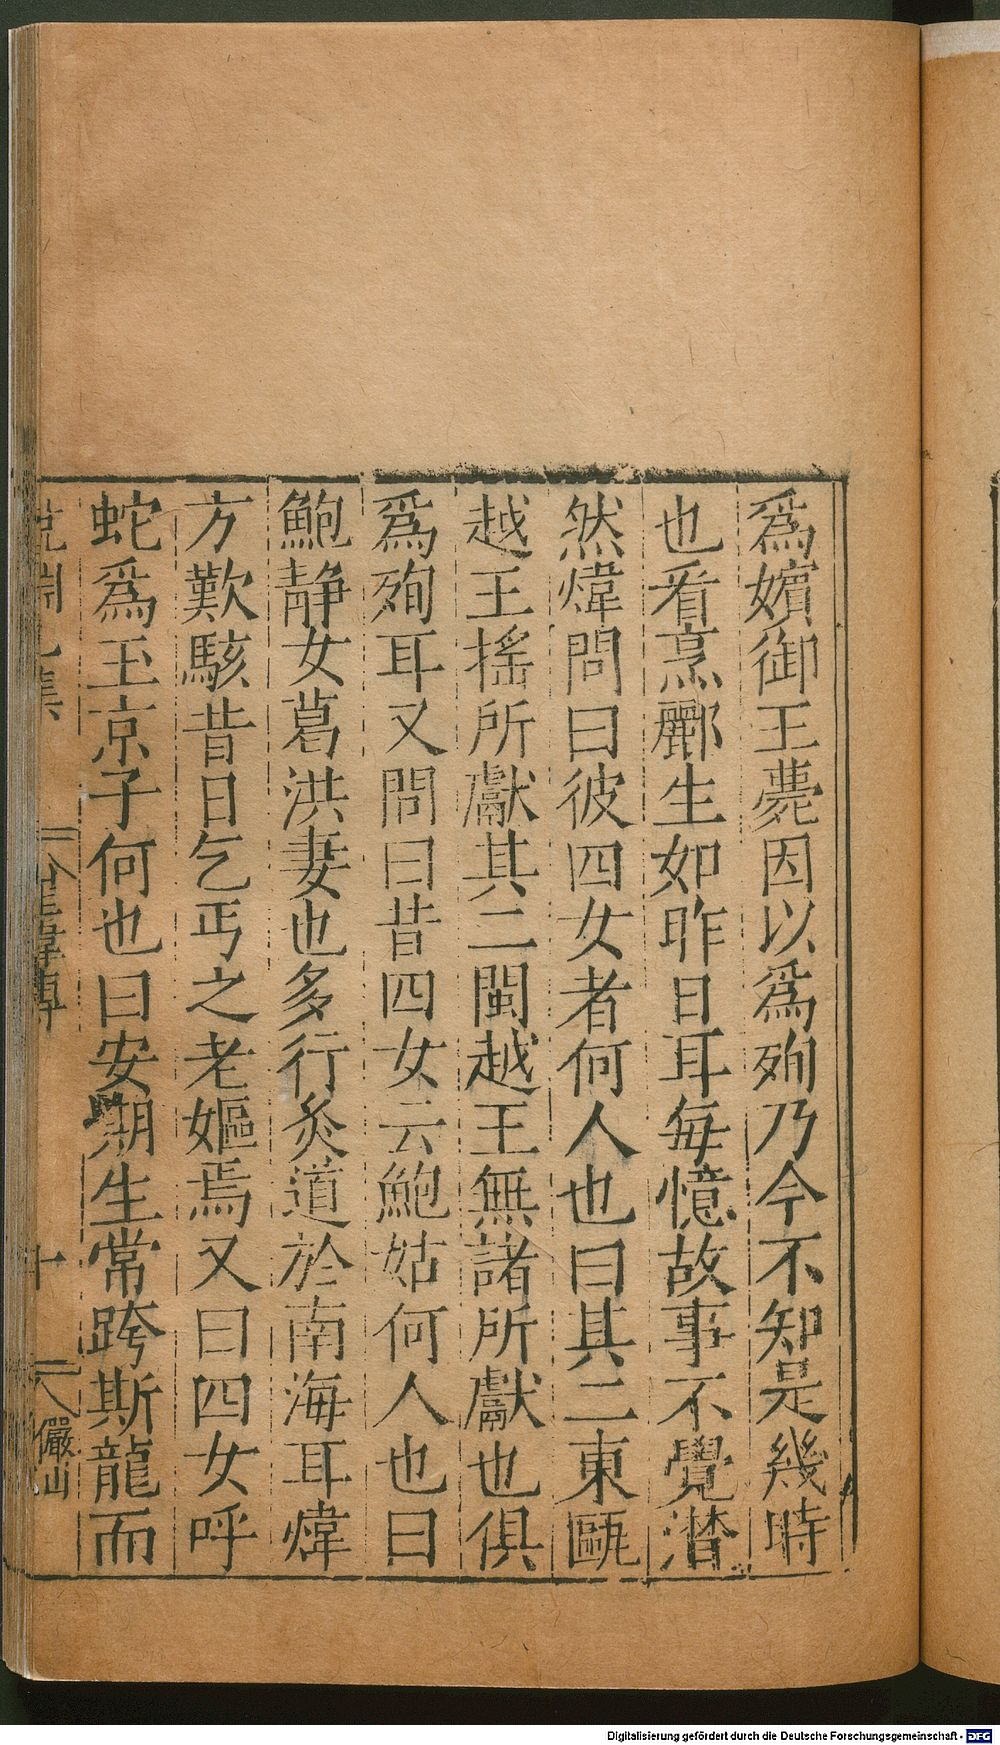 爲嬪御王薨因以爲殉乃今不知是幾時
也看烹酈生如昨日耳每憶故事不覺潸
然煒問曰彼四女者何人也曰其二東甌
越王搖所獻其二閩越王無諸所獻也俱
爲殉耳又問曰昔四女云鮑姑何人也曰
鮑靜女葛洪妻也多行灸道於南海耳煒
方歎駭昔日乞丐之老嫗焉又曰四女呼
蛇爲玉京子何也曰安期生常跨斯龍而
集
煒傳
十
儼山
Digitalisierung gefördert durch die Deutsche Forschungsgemeinschaft - DFG